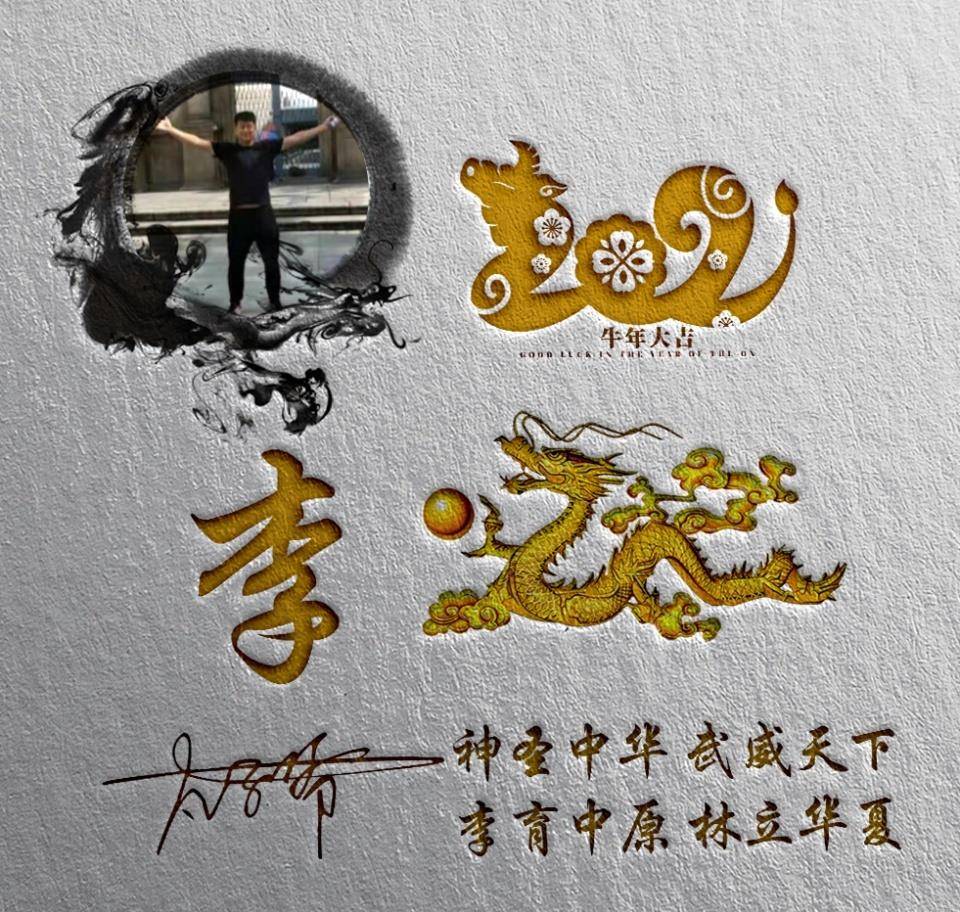 牛年大吉
GOOD LUCK IN THE YEAR OF THE OX
李
神圣中华 武威天下
李育中原 林立华夏